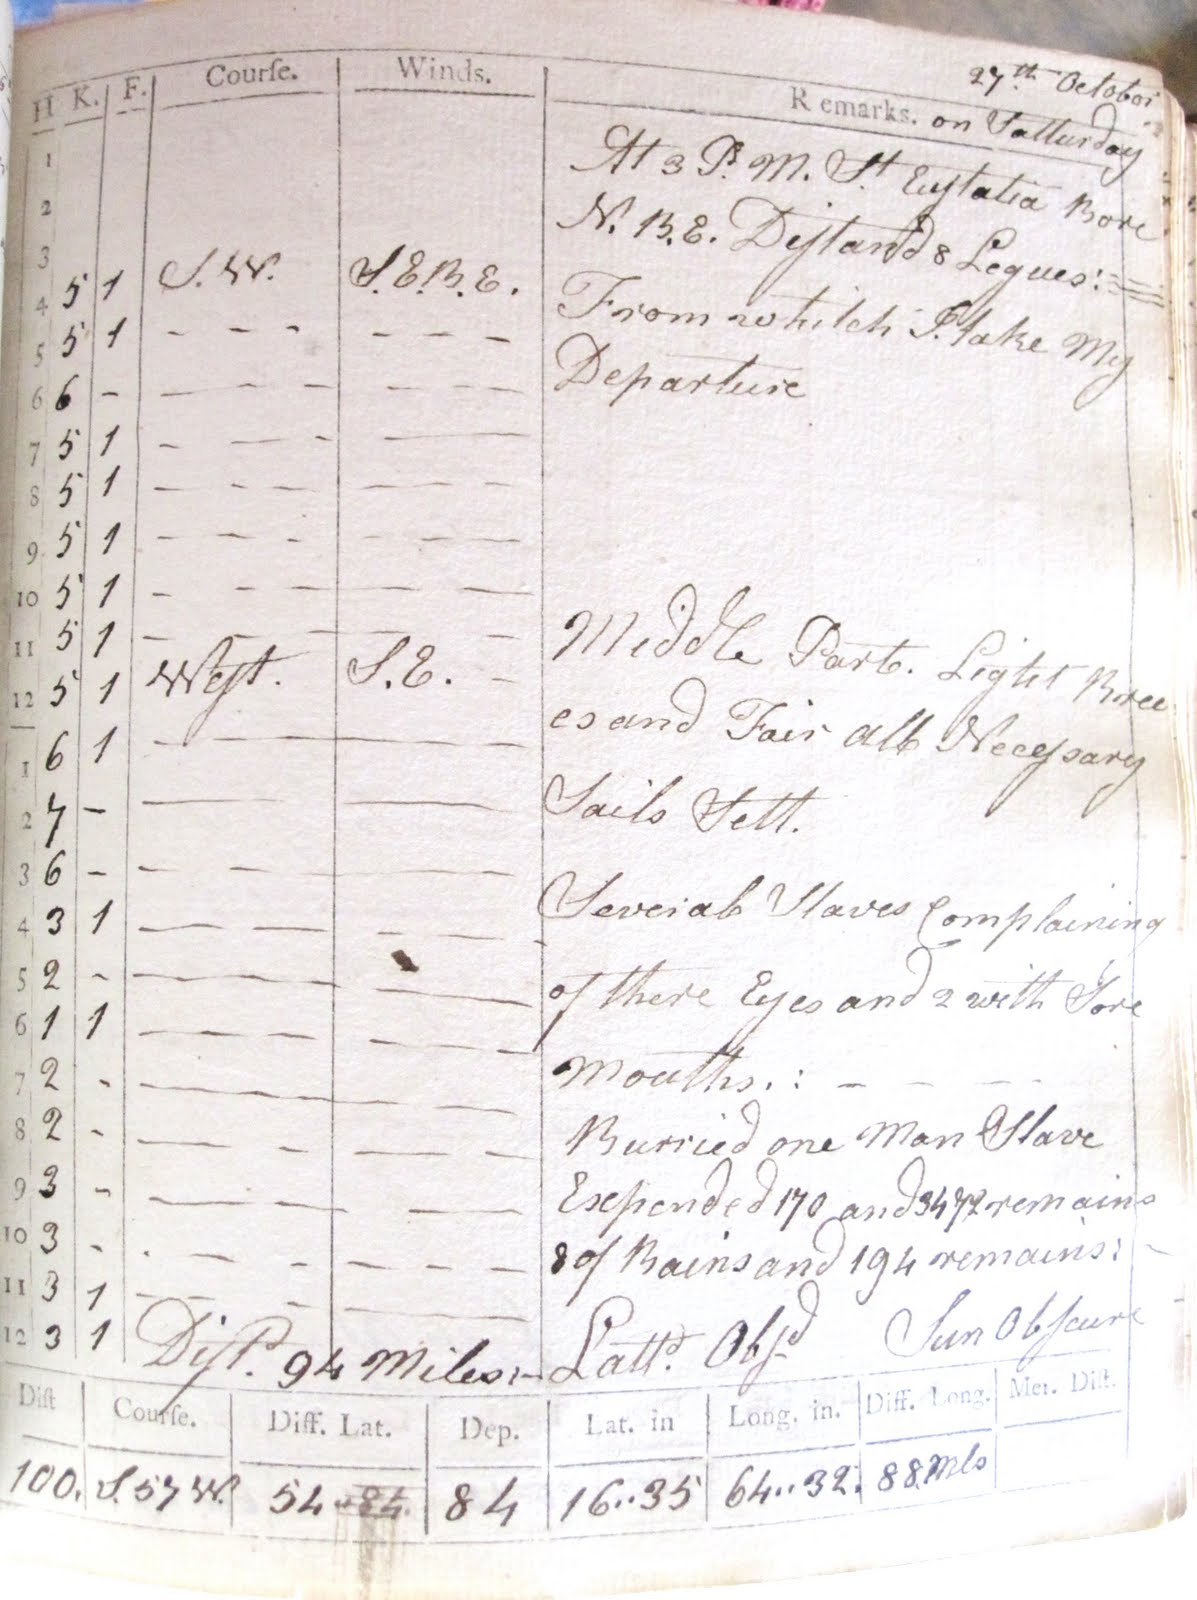 27th October
H K. F. Courſe. Winds. Remarks. on Satturday
1 At 3 P. M. St Eustatia Bore
2 N. B. E. Distand 8 Legues:
3
4 5 1 S. W. S. E. B. E. From whitch I take My
5 5 1 - - - - - - Departure
6 6 - - - - - - -
7 5 1 - - - - -
8 5 1 - - - - - -
9 5 1 - - - - - -
10 5 1 - - - - - -
11 5 1 - - - - - - Middle Part. Light Bree
12 5 1 West. S. E. - es and Fair all Necessary
1 6 1 - - -
2 7 - - - Sails Sett.
3 6 - - - - - - -
4 3 1 - - - - - - Several Slaves Complaining
5 2 - - - - - - of there Eyes and 2 with Sore
6 1 1 - - - - - -
7 2 - - - - - - - Mouths.: - - - -
8 2 - - - - - - - Burried one Man Slave
9 3 - - - - - - Expended 170 and 3472 remains
10 3 - - - - - - - 8 of Bains and 194 remains: -
11 3 1 - - - - -
12 3 1 Dist. 94 Miles:- Lattd. Obsd Sun Obscure
Diſt Courſe. Diff. Lat. Dep. Lat. in Long. in. Diff. Long. Mer. Diſt.
100. S. 57 W. 54 84. 84 16..35 64..32. 88 Mls